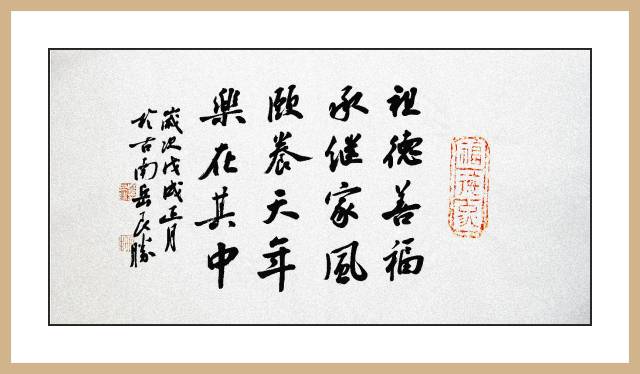 祖德善福
承继家风
颐养天年
樂在其中
歲次戊戌正月
於古南岳民勝